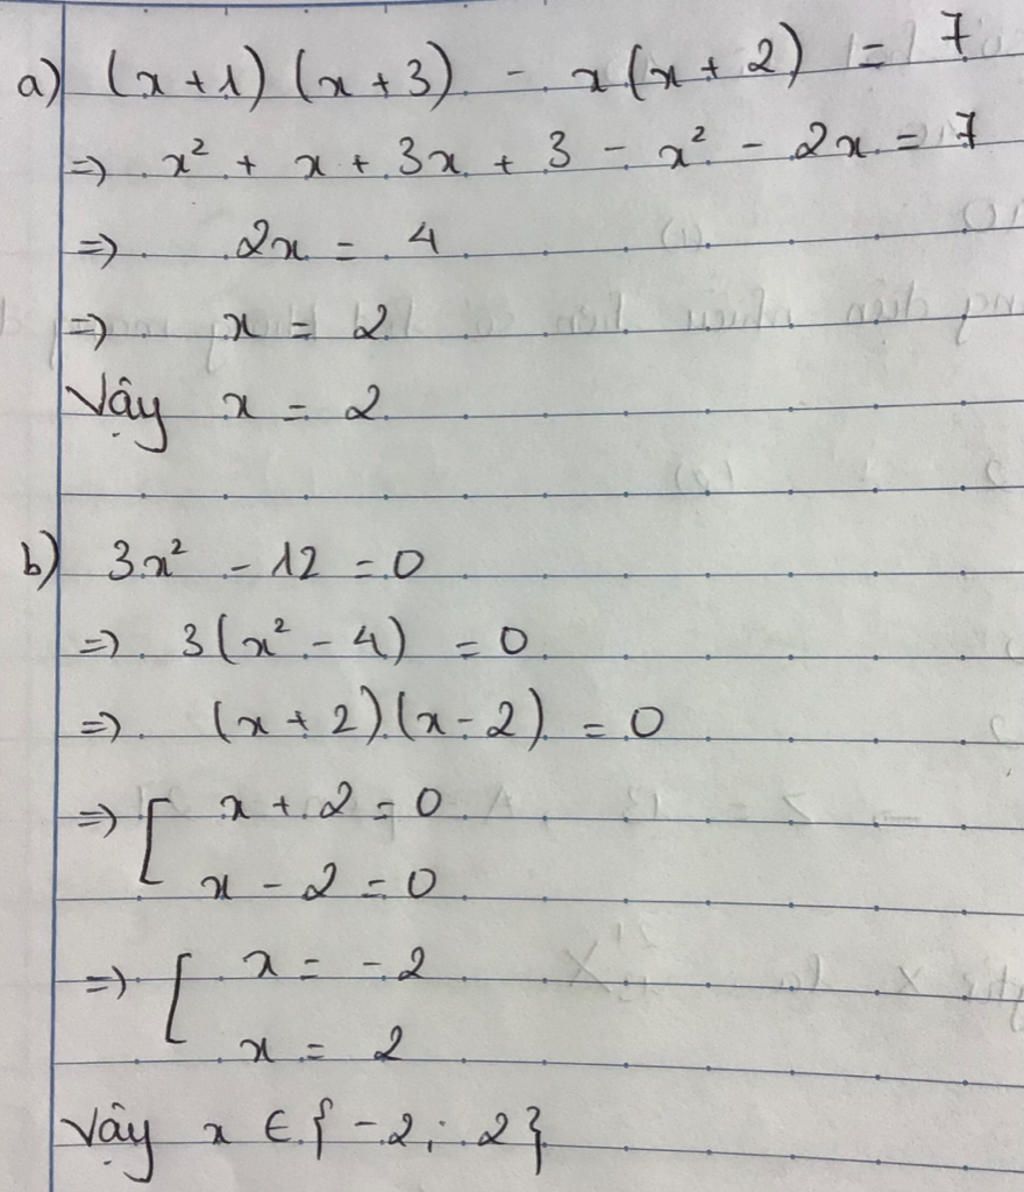 a) (x + 1) (x + 3) - x(x + 2) = 7
=> x² + x + 3x + 3 - x² - 2x = 7
=> 2x = 4
=> x = 2
Vậy x = 2
b) 3x² - 12 = 0
=> 3(x² - 4) = 0
=> (x + 2)(x - 2) = 0
=> [ x + 2 = 0
x - 2 = 0
=> [ x = -2
x = 2
Vậy x ∈ { -2 ; 2 }